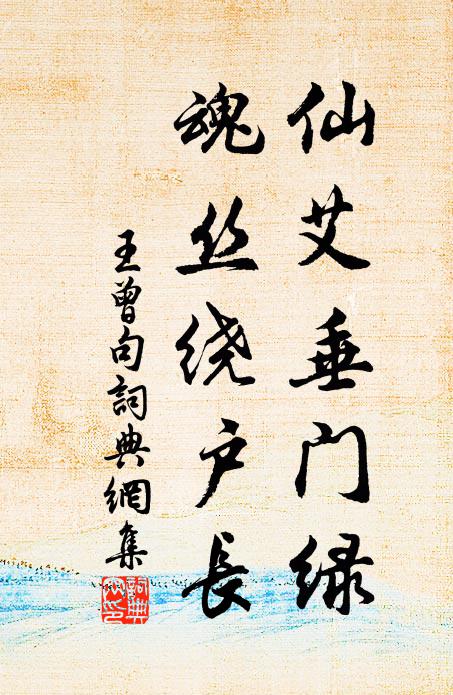 仙艾垂门绿
魂丝绕户长
王曾句詞典網集